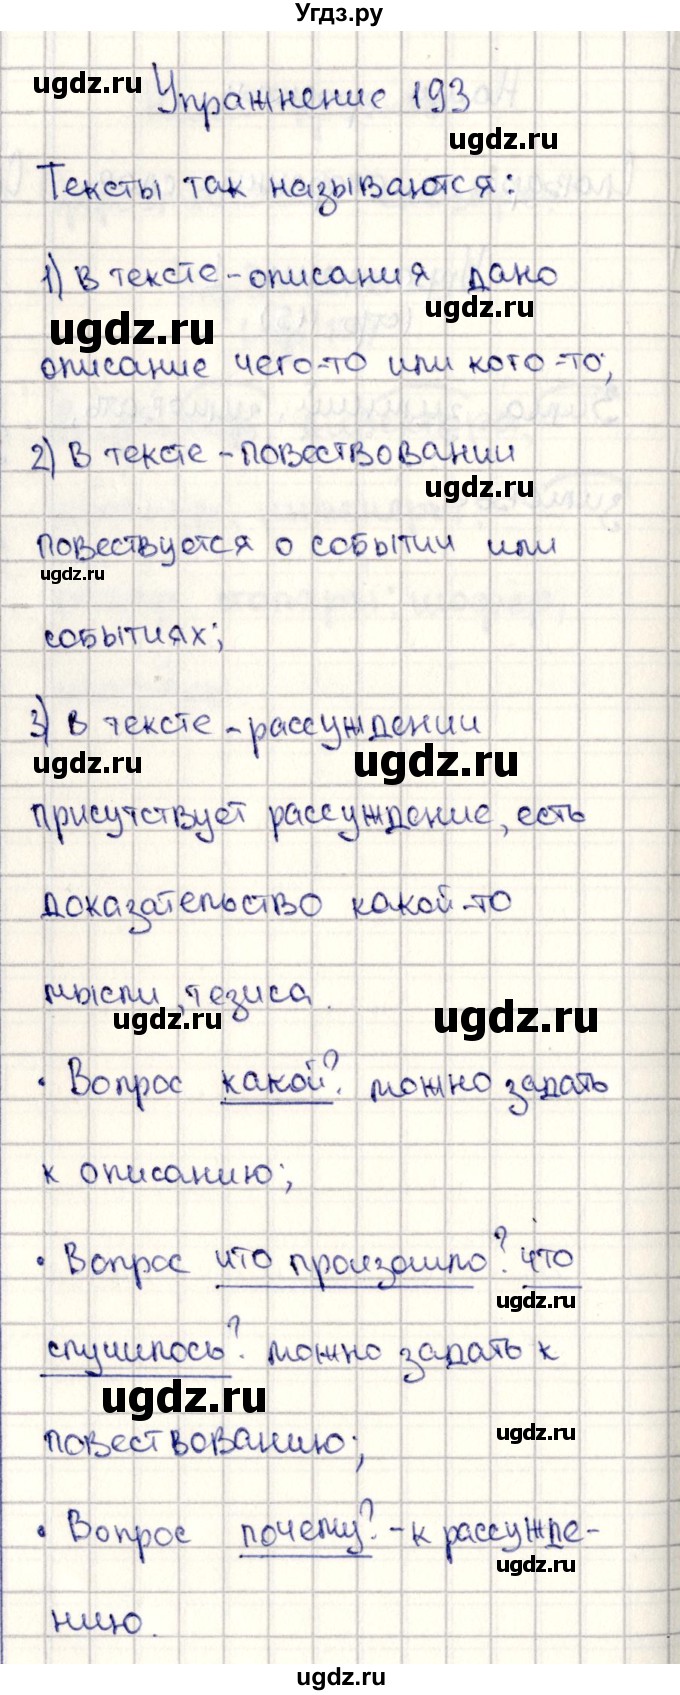 Угдз.ру
ugdz.ru
Упражнение 193
ugdz.ru
Тексты так называются:
1) В тексте-описания дано
ugdz.ru
ugdz.ru
описание чего-то или кого-то;
2) В тексте-повествовании
ugdz.ru
повествуется о событии или
ugdz.ru
событиях;
3) В тексте-рассуждении
ugdz.ru
ugdz.ru
присутствует рассуждение, есть
доказательство какой-то
мысли, тезиса.
ugdz.ru
ugdz.ru
• Вопрос какой? можно задать
к описанию;
• Вопрос что произошло? что
ugdz.ru
случилось? можно задать к
ugdz.ru
повествованию;
ugdz.ru
• Вопрос почему? - к рассужде-
ugdz.ru
нию.
ugdz.ru